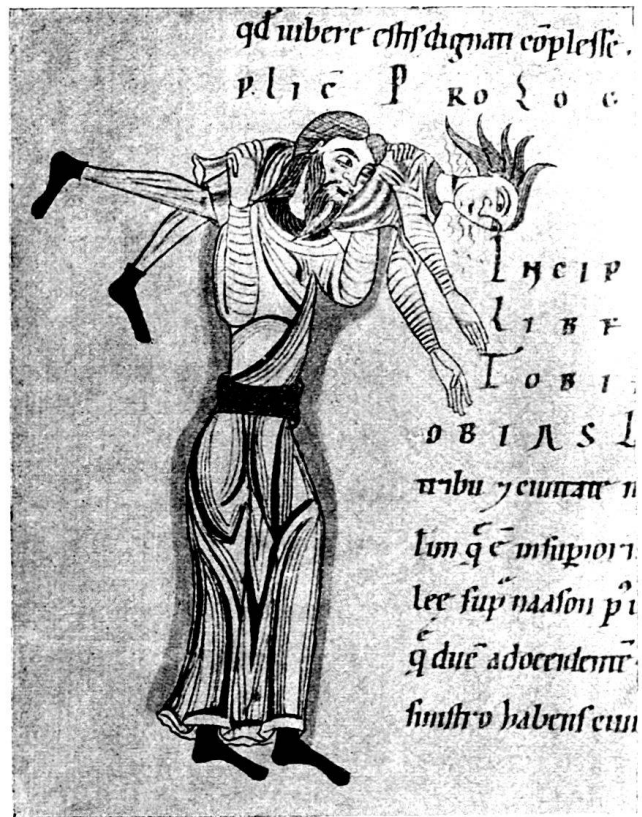 qđ iubere estis dignati cōplesse.
PLIC̄ PROLOG
INCIP
LIBR
TOBI
OBIAS L
tribu ⁊ ciuitate n
lim q̄ ē insupiori
lee sup̄ naason p
q̄ duc̄ adoccidentē
sinistro habens ciui